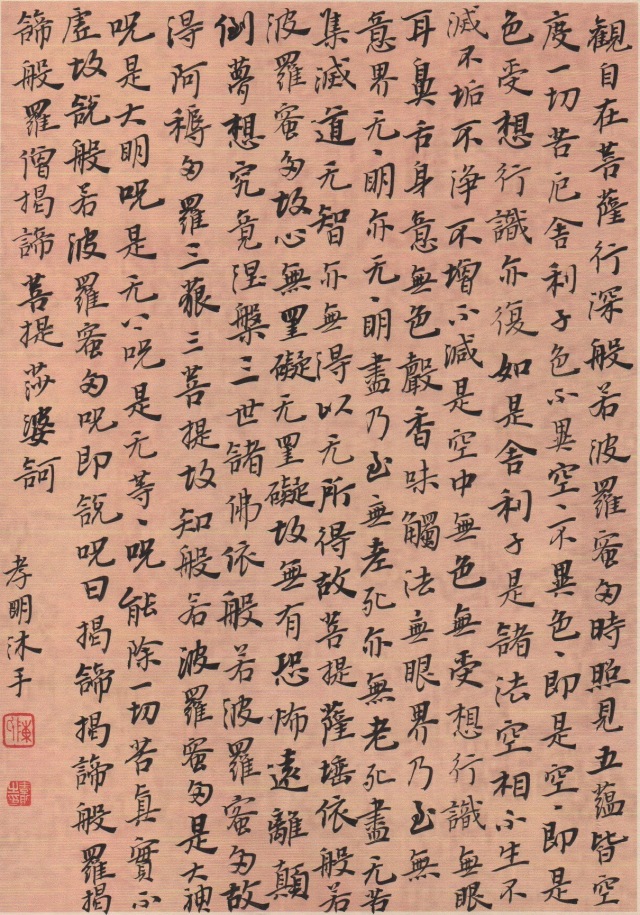 觀自在菩薩行深般若波羅蜜多時照見五蘊皆空
度一切苦厄舍利子色不異空、不異色、即是空、即是
色受想行識亦復如是舍利子是諸法空相不生不
滅不垢不淨不增不減是空中無色無受想行識無眼
耳鼻舌身意無色聲香味觸法無眼界乃至無
意界无、明亦无、明盡乃至無老死亦無老死盡无苦
集滅道无智亦無得以无所得故菩提薩埵依般若
波羅蜜多故心無罣礙无罣礙故無有恐怖遠離顛
倒夢想究竟涅槃三世諸佛依般若波羅蜜多故
得阿耨多羅三藐三菩提故知般若波羅蜜多是大神
呪是大明呪是无上呪是无等、呪能除一切苦真實不
虛故說般若波羅蜜多呪即說呪曰揭諦揭諦般羅揭
諦般羅僧揭諦菩提莎婆訶
孝明沐手